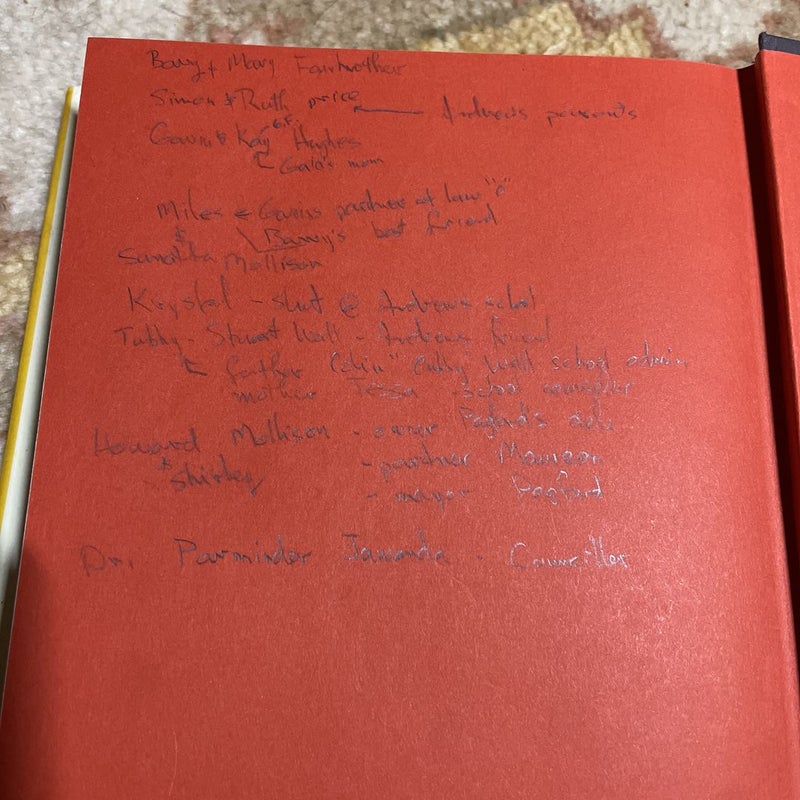 Barry + Mary Fairwether
Simon & Ruth price ← Andrew's parents
Gavin & Kay G.F. Hughes
Gaia's mom
Miles ← Gavins partner at law "o"
& \ Barry's best friend
Samantha Mollison
Krystal - slut @ Andrews school
Tubby - Stuart Wall - Andrews friend
father Colin "Cubby" Wall school admin
mother Tessa school counseller
Howard Mollison - owner Pagford's deli
& Shirley - partner Maureen
- mayor Pagford
Dr. Parminder Jawanda - Counciller